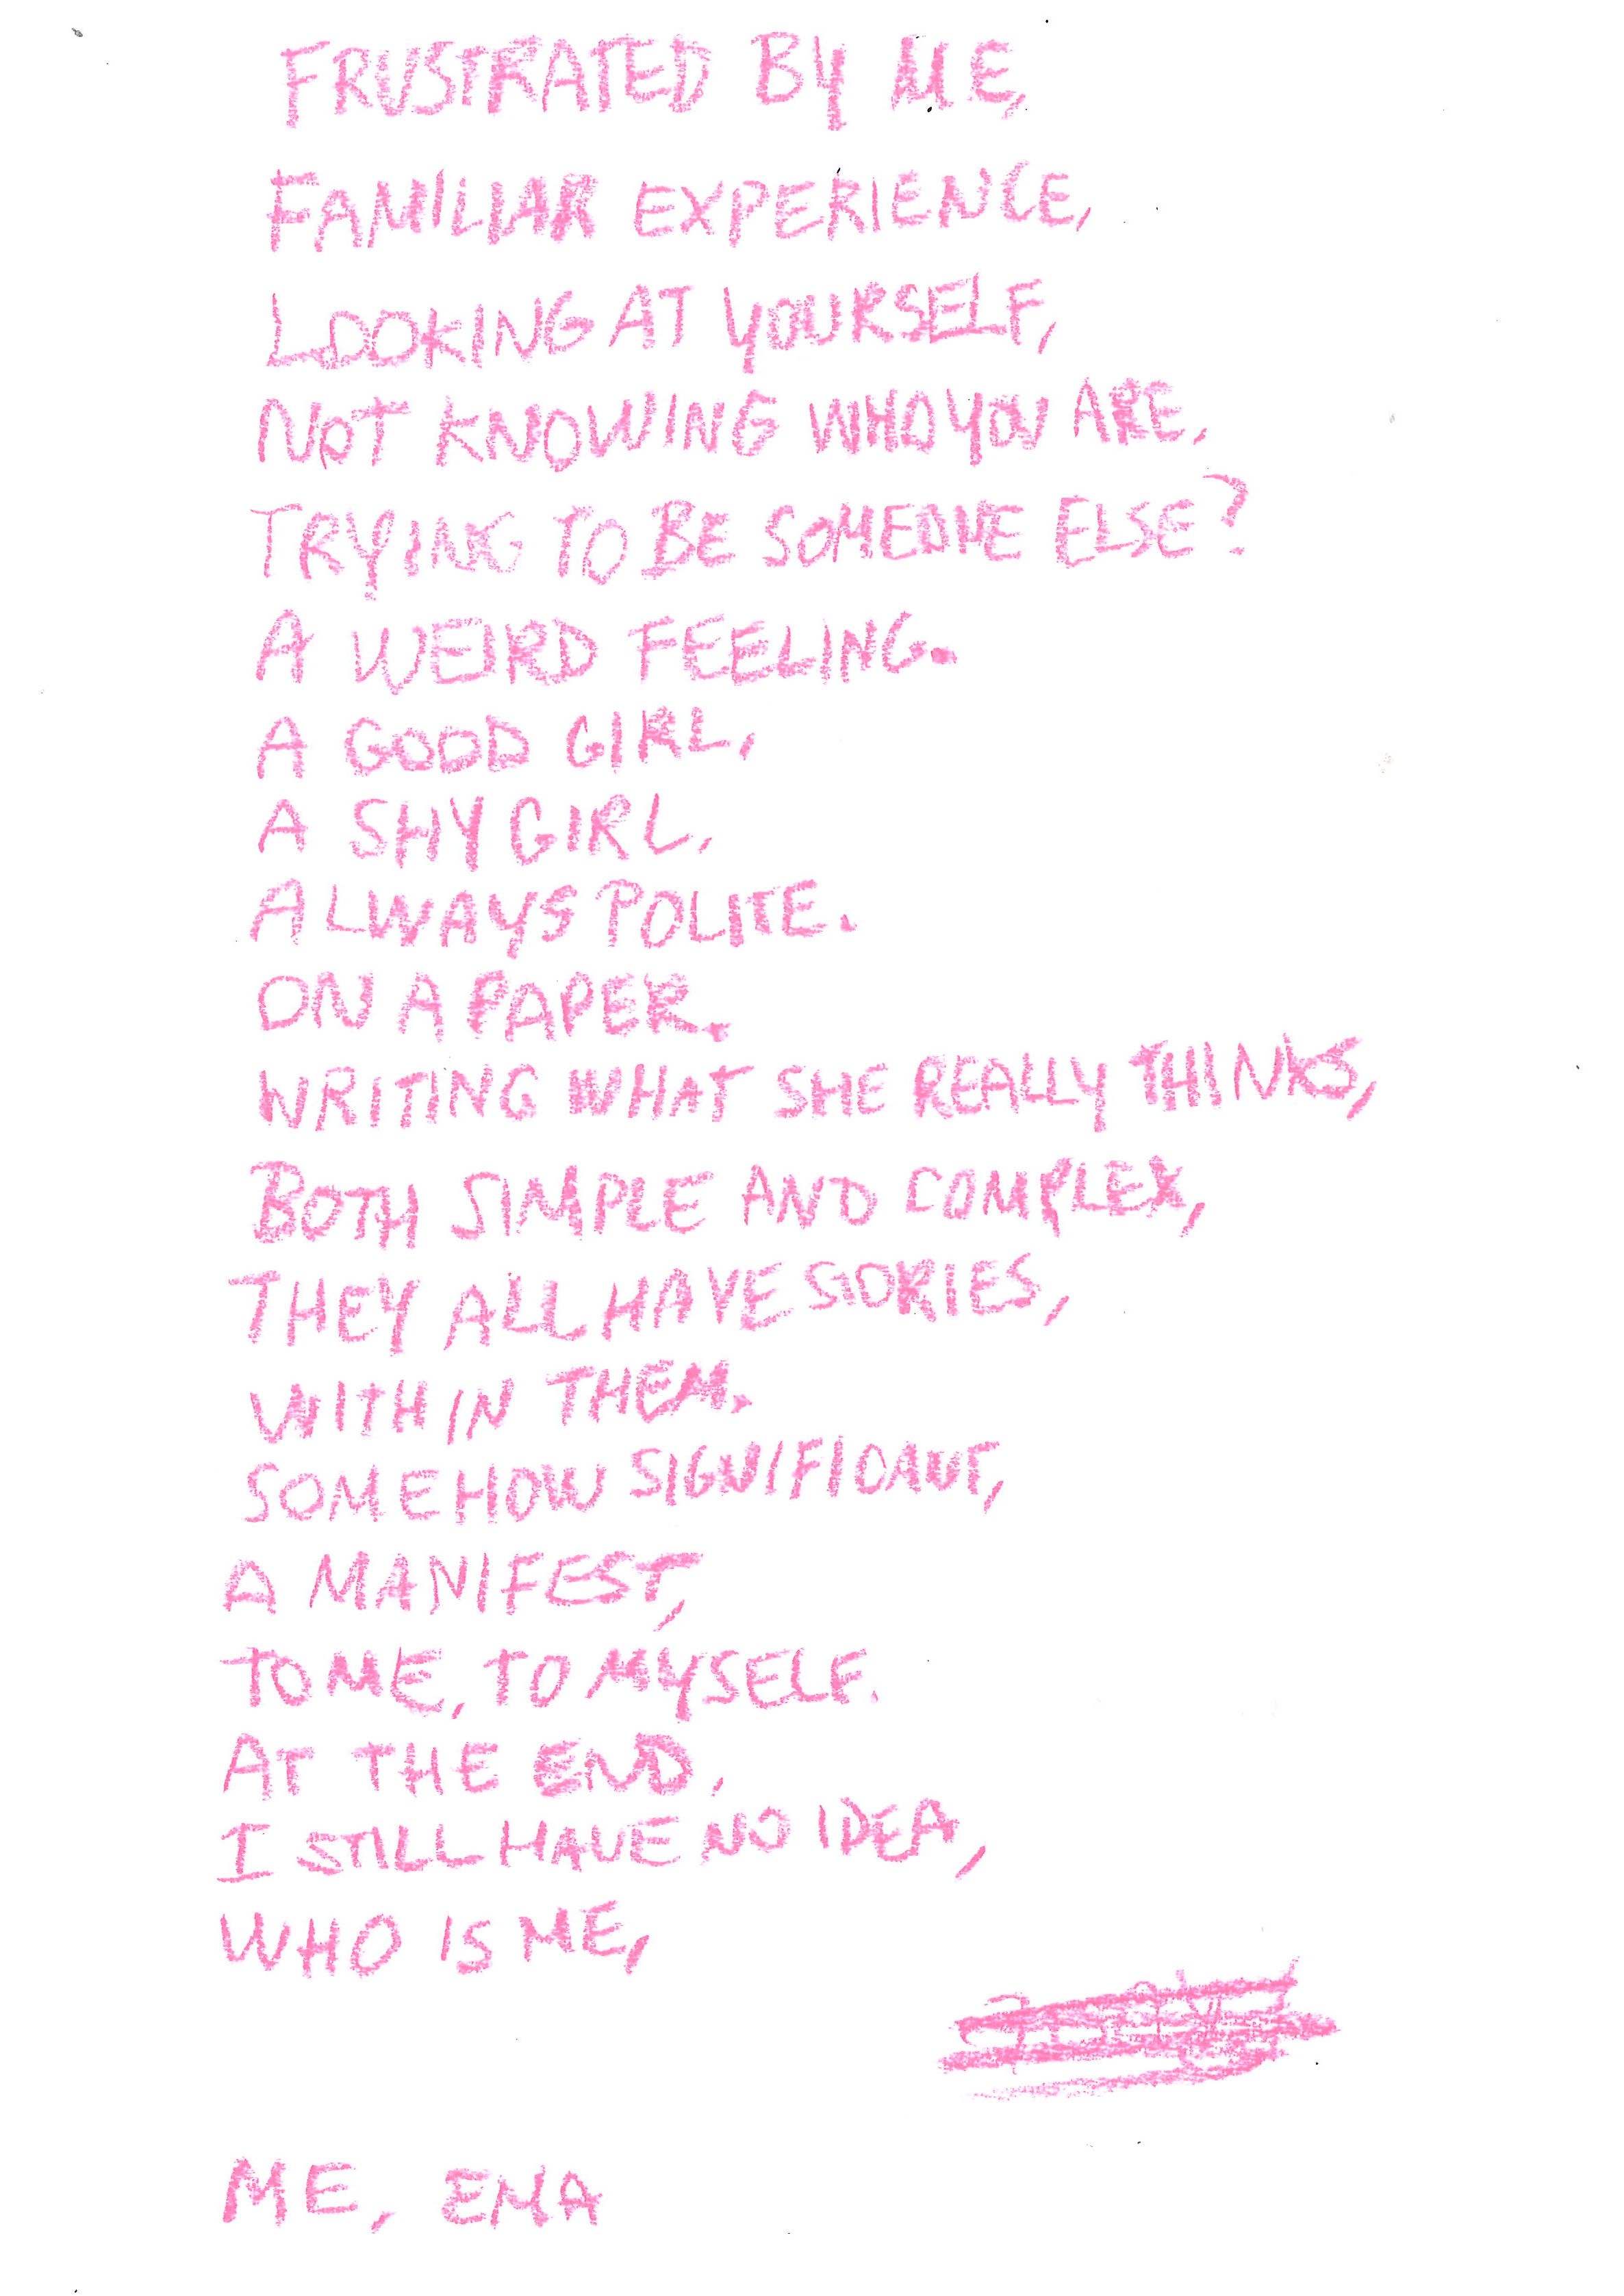 FRUSTRATED BY ME,
FAMILIAR EXPERIENCE,
LOOKING AT YOURSELF,
NOT KNOWING WHO YOU ARE,
TRYING TO BE SOMEONE ELSE?
A WEIRD FEELING.
A GOOD GIRL,
A SHY GIRL,
ALWAYS POLITE.
ON A PAPER.
WRITING WHAT SHE REALLY THINKS,
BOTH SIMPLE AND COMPLEX,
THEY ALL HAVE STORIES,
WITHIN THEM.
SOMEHOW SIGNIFICANT,
A MANIFEST,
TO ME, TO MYSELF.
AT THE END,
I STILL HAVE NO IDEA,
WHO IS ME,
ME, EMA